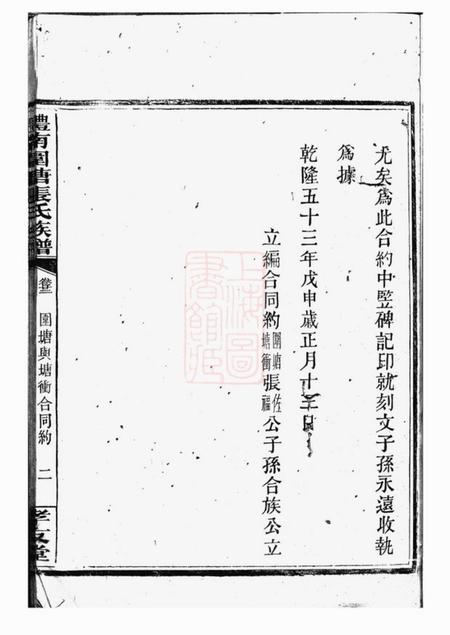 尤矣爲此合約中竪碑記印就刻文子孫永遠收執
爲據
乾隆五十三年戊申歲正月十三日
立編合同約圍塘塘衝張佐福公子孫合族公立
醴南圍塘張氏族譜
卷三
圍塘與塘衝合同約
二
孝友堂
上海圖書館藏